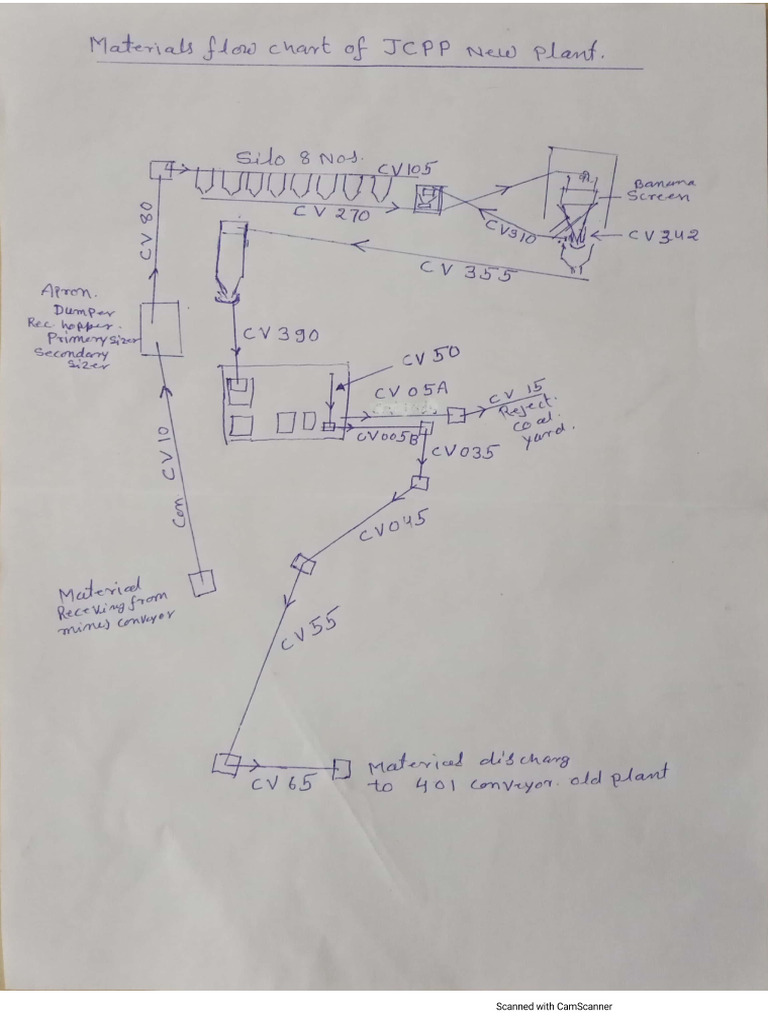 Materials flow chart of JCPP New Plant.
Silo 8 Nos.
CV105
CV 270
CV310
Banana
Screen
CV 342
CV 355
CV 80
Apron.
Dumper
Rec. hopper.
Primary sizer
Secondary
sizer
CV 390
CV 50
CV 05A
CV 15
Reject
coal
yard.
CV005B
CV035
Con CV10
CV045
Material
Receving from
mines conveyor
CV 55
CV 65
Material discharg
to 401 conveyor. old plant
Scanned with CamScanner